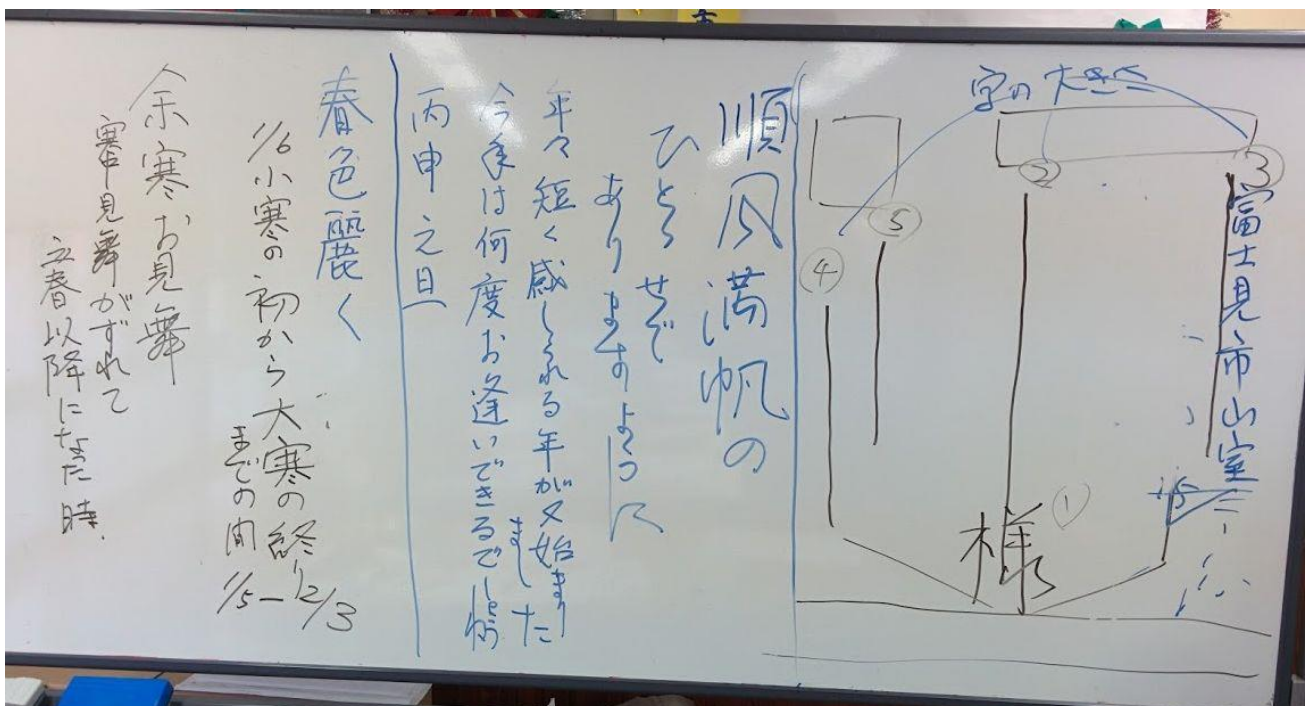 字の大きさ
③
②
富士見市山室
①
様
⑤
④
順風満帆の
ひととせで
ありますように
年々短く感じられる年が又始まりました
今年は何度お逢いできるでしょうね
丙申元旦
春色麗く
1/6小寒の初から大寒の終
までの間
1/5―2/3
余寒お見舞
寒中見舞がずれて
立春以降になった時